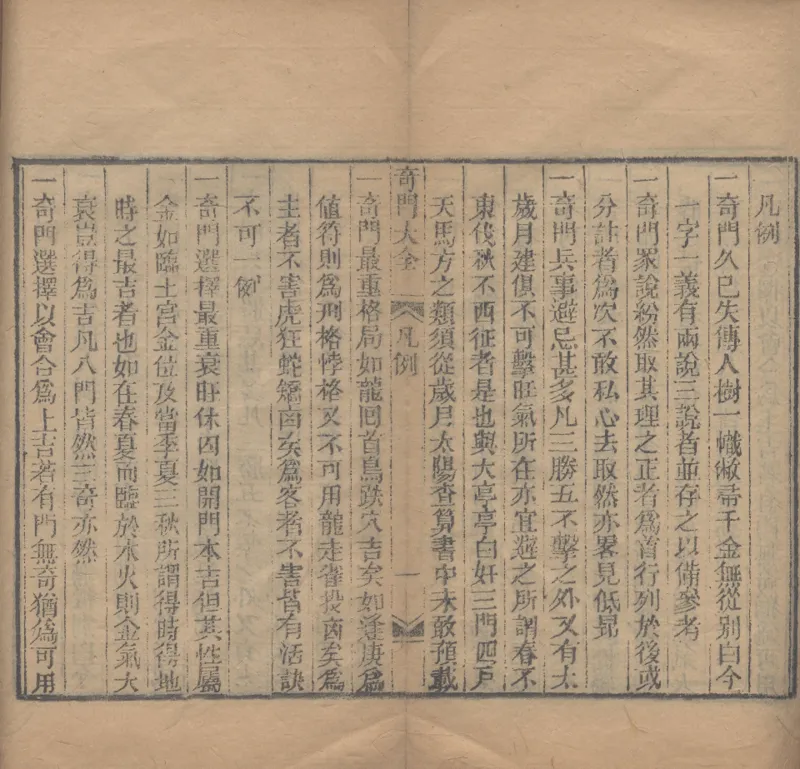 凡例
一奇門久已失傳人樹一幟敝帚千金無從別白今
一字一義有兩說三說者並存之以備參考
一奇門衆說紛然取其理之正者爲首行列於後或
分註者爲次不敢私心去取然亦畧見低昻
一奇門兵事避忌甚多凡三勝五不擊之外又有太
歲月建俱不可擊旺氣所在亦宜避之所謂春不
東伐秋不西征者是也與大亭亭白奸三門四戶
天馬方之類須從歲月太陽查算書中未敢預載
奇門大全 凡例 一
一奇門最重格局如龍回首鳥跌穴吉矣如逢庚爲
値符則爲刑格悖格又不可用龍走雀投凶矣爲
主者不害虎狂蛇矯凶矣爲客者不害皆有活訣
不可一例
一奇門選擇最重衰旺休囚如開門本吉但其性屬
金如臨土宮金位及當季夏三秋所謂得時得地
時之最吉者也如在春夏而臨於木火則金氣大
衰豈得爲吉凡八門皆然三奇亦然
一奇門選擇以會合爲上吉若有門無奇猶爲可用